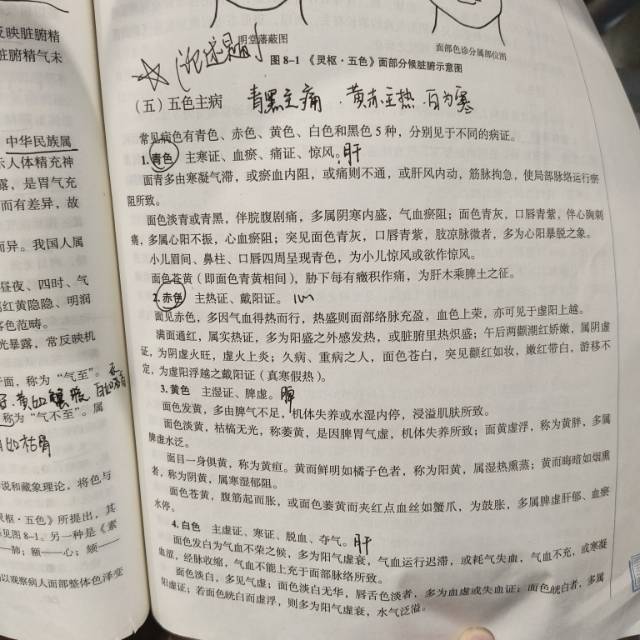 明堂藩蔽图
面部色诊分属部位图
图 8-1 《灵枢·五色》面部分候脏腑示意图
(五) 五色主病 青黑主痛·黄赤主热·白为寒
常见病色有青色、赤色、黄色、白色和黑色 5 种，分别见于不同的病证。
1. 青色 主寒证、血瘀、痛证、惊风。肝
面青多由寒凝气滞，或瘀血内阻，或痛则不通，或肝风内动，筋脉拘急，使局部脉络运行瘀
阻所致。
面色淡青或青黑，伴脘腹剧痛，多属阴寒内盛，气血瘀阻；面色青灰，口唇青紫，伴心胸刺
痛，多属心阳不振，心血瘀阻；突见面色青灰，口唇青紫，肢凉脉微者，多为心阳暴脱之象。
小儿眉间、鼻柱、口唇四周呈现青色，为小儿惊风或欲作惊风。
面色苍黄（即面色青黄相间），胁下每有癥积作痛，为肝木乘脾土之征。
2. 赤色 主热证、戴阳证。心
面见赤色，多因气血得热而行，热盛则面部络脉充盈，血色上荣，亦可见于虚阳上越。
满面通红，属实热证，多为阳盛之外感发热，或脏腑里热炽盛；午后两颧潮红娇嫩，属阴虚
证，为阴虚火旺，虚火上炎；久病、重病之人，面色苍白，突见颧红如妆，嫩红带白，游移不
定，为虚阳浮越之戴阳证（真寒假热）。
3. 黄色 主湿证、脾虚。脾
面色发黄，多由脾气不足，机体失养或水湿内停，浸溢肌肤所致。
面色淡黄，枯槁无光，称萎黄，是因脾胃气虚，机体失养所致；面黄虚浮，称为黄胖，多属
脾虚水泛。
面目一身俱黄，称为黄疸。黄而鲜明如橘子色者，称为阳黄，属湿热熏蒸；黄而晦暗如烟熏
者，称为阴黄，属寒湿郁阻。
面色苍黄，腹筋起而胀，或面色萎黄而夹红点血丝如蟹爪，为鼓胀，多属脾虚肝郁、血瘀
水停。
4. 白色 主虚证、寒证、脱血、夺气。肝
面色发白为气血不荣之候，多为阳气虚衰，气血运行迟滞，或耗气失血，气血不充，或寒凝
血涩，经脉收缩，气血不能上充于面部脉络所致。
面色淡白，多见气虚；面色淡白无华，唇舌色淡者，多为血虚或失血证；面色㿠白者，多属
阳虚证；若面色㿠白而虚浮，则多为阳气虚衰，水气泛溢。
反映脏腑精
脏腑精气未
中华民族属
示人体精充神
露，是胃气充
而有差异，故
而异。我国人属
昼夜、四时、气
红黄隐隐、明润
客色范畴。
光暴露，常反映机
面，称为“气至”。
称为“气不至”。属
说和藏象理论，将色与
灵枢·五色》所提出，其
见图 8-1。另一种是《素
——肺；额——心；颏——
以观察病人面部整体色泽变